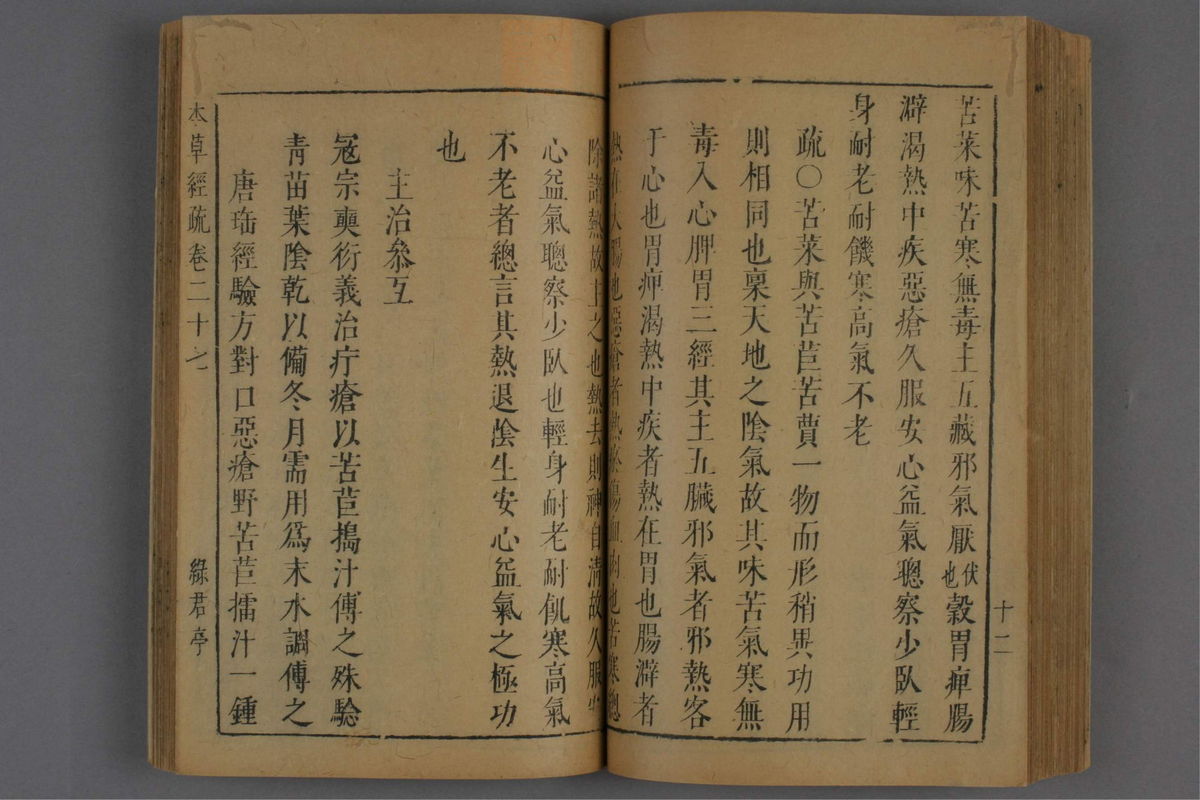 苦菜味苦寒無毒主五藏邪氣厭伏也穀胃痺腸
澼渴熱中疾惡瘡久服安心益氣聰察少臥輕
身耐老耐饑寒高氣不老
疏○苦菜與苦苣苦蕒一物而形稍異功用
則相同也稟天地之陰氣故其味苦氣寒無
毒入心脾胃三經其主五臟邪氣者邪熱客
于心也胃痺渴熱中疾者熱在胃也腸澼者
熱在大腸也惡瘡者熱瘀傷血肉也苦寒總
除諸熱故主之也熱去則神自清故久服安
心益氣聰察少臥也輕身耐老耐飢寒高氣
不老者總言其熱退陰生安心益氣之極功
也
主治參互
寇宗奭衍義治疔瘡以苦苣搗汁傅之殊驗
青苗葉陰乾以備冬月需用爲末水調傅之
唐瑤經驗方對口惡瘡野苦苣擂汁一鍾
本草經疏 卷二十七
綠君亭
十二